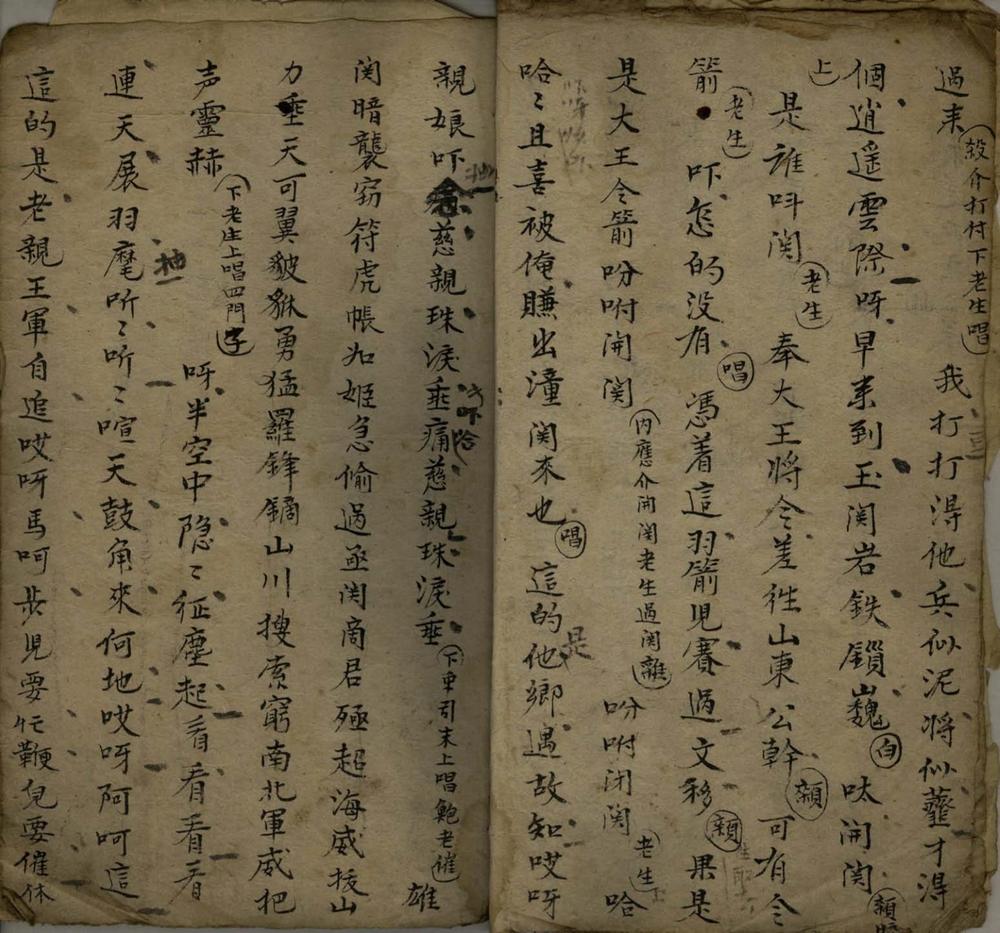 過来（殺介打付下老生唱）我打打得他兵似泥將似虀才得
個逍遥雲際呀早来到玉関岩鉄鎖巍（白）呔開関
上是誰呌関（老生）奉大王將令差往山東公幹（頼）可有令
箭（老生）吓怎的没有（唱）馮着這羽箭児賽過文移（頼）果是
是大王令箭吩咐開関（内應介開関老生過関離）吩咐闭関（老生）哈
哈〻且喜被俺賺出潼関來也（唱）這的是他鄉遇故知哎呀
親娘吓慈親珠淚垂痛慈親珠淚垂（下車引末上唱鮑老催）雄
関暗襲窃符虎帳如姬急偷過函関商君殛超海威拔山
力垂天可翼貔貅勇猛羅鋒鏑山川搜索窮南北軍威把
声靈赫（下老生上唱四門子）呀半空中隐〻征塵起看看看看
連天展羽麾听〻听〻喧天鼓角來何地哎呀阿呵這
這的是老親王軍自追哎呀馬呵步児要忙鞭兒要催休